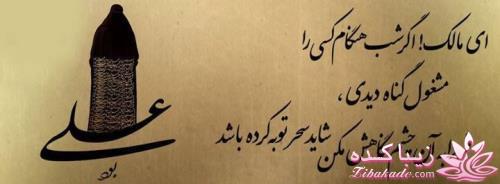 ای مالک! اگر شب هنگام کسی را
مشغول گناه دیدی،
آن چشم نگاهش مکن شاید سحر توبه کرده باشد
علی
زیباکده
Zibakade.com